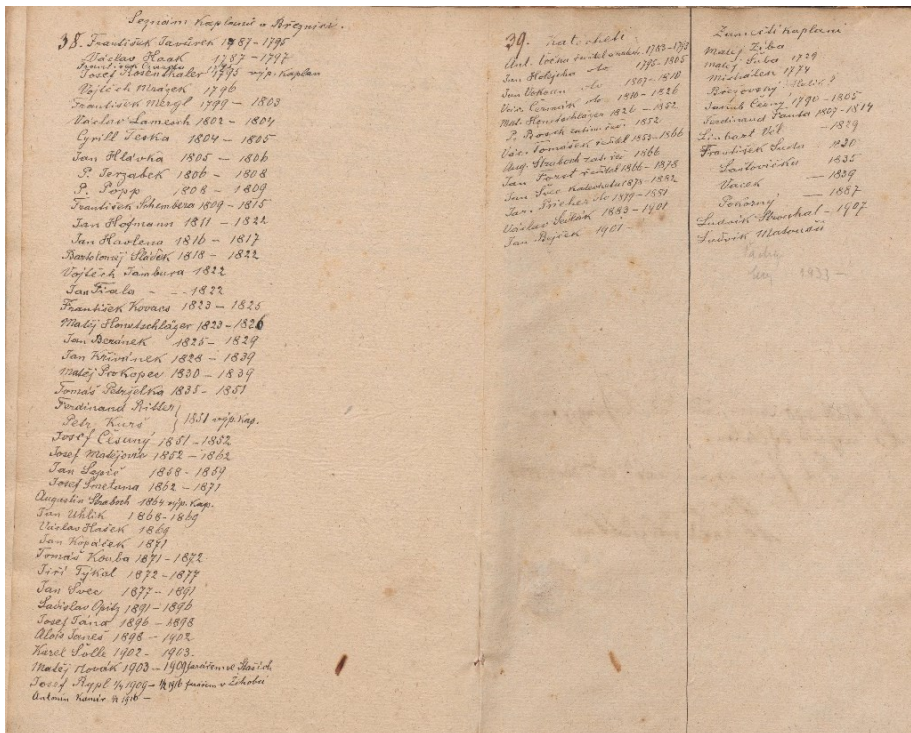 Seznam Kaplanů v Březnici.
38. František Tavůrek 1787-1795
Václav Haak 1787-1797
František
Josef Rosenthaler 1795 výp. Kaplan
Vojtěch Mrázek 1796
František Mergl 1799 - 1803
Václav Lamesch 1802 - 1804
Cyrill Teska 1804 - 1805
Jan Hlávka 1805 - 1806
P. Jeřábek 1806 - 1808
P. Popp 1808 - 1809
František Schembera 1809 - 1815
Jan Hofmann 1811 - 1822
Jan Havlena 1816 - 1817
Bartoloměj Sládek 1818 - 1822
Vojtěch Tambura 1822
Jan Fiala - - 1822
František Kovacs 1823 - 1825
Matěj Honetschläger 1823 - 1826
Jan Beránek 1825 - 1829
Jan Křivánek 1828 - 1839
Matěj Prokopec 1830 - 1839
Tomáš Petrželka 1835 - 1851
Ferdinand Ritter
Petr Kurs } 1851 výp. Kap.
Josef Česaný 1851 - 1852
Josef Matějovic 1852 - 1862
Jan 1858 - 1859
Josef Smetana 1862 - 1871
Augustin Straboch 1864 výp. Kap.
Jan Uhlík 1868 - 1869
Václav Hašek 1869
Jan Kopáček 1871
Tomáš Kouba 1871 - 1872
Jiří Týkal 1872 - 1877
Jan Švec 1877 - 1891
Ladislav Opitz 1891 - 1896
Josef Tána 1896 - 1898
Alois Janeš 1898 - 1902
Karel Šolle 1902 - 1903.
Matěj Novák 1903 - 1909 farářem ve
Josef Rypl 1909 - 1916 farářem v
Antonín 1916 -
39. Katecheti
Ant. Vočka 1783-1795
Jan dto 1795-1805
Jan Vokoun dto 1807-1810
Václ. Čermák dto 1810 - 1826
Mat. Honetschläger 1826 - 1852
P. 1852
Vác. Tomášek ředitel 1853-1866
Aug. Straboch 1866
Jan ředitel 1866 - 1878
Jan Švec katecheta 1878-1882
Jar. dto 1879-1881
Václav 1883 - 1901
Jan 1901 -
Zámečtí Kaplani
Matěj Žiba
Matěj Šuba 1729
Michálek 1774
Březovský
Jakub Černý 1790 - 1805
Ferdinand Fanta 1807 - 1814
Linhart Vít - 1829
František 1830
1835
Vacek - 1839
Pokorný - 1887
Ludvík - 1907
Ludvík Matoušů
1933 -